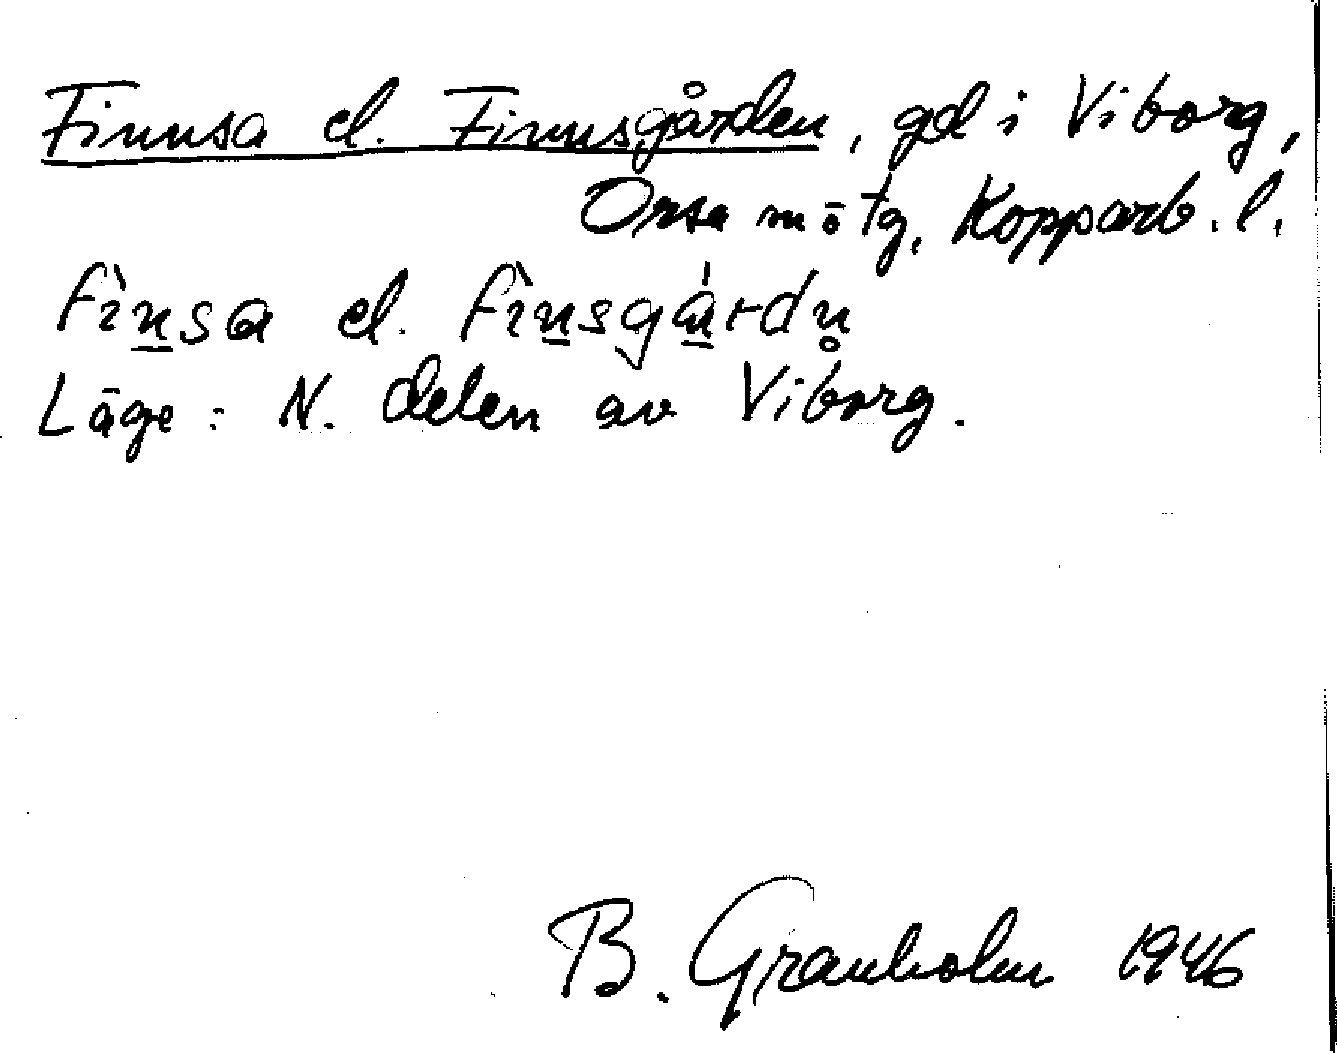 Finnsa el. Finnsgården, gd i Viborg,
Orsa mötg, Kopparb. l.
fìn̲sa el. fìn̲sgá̲rdn̥
Läge: N. delen av Viborg.
B. Granholm 1946